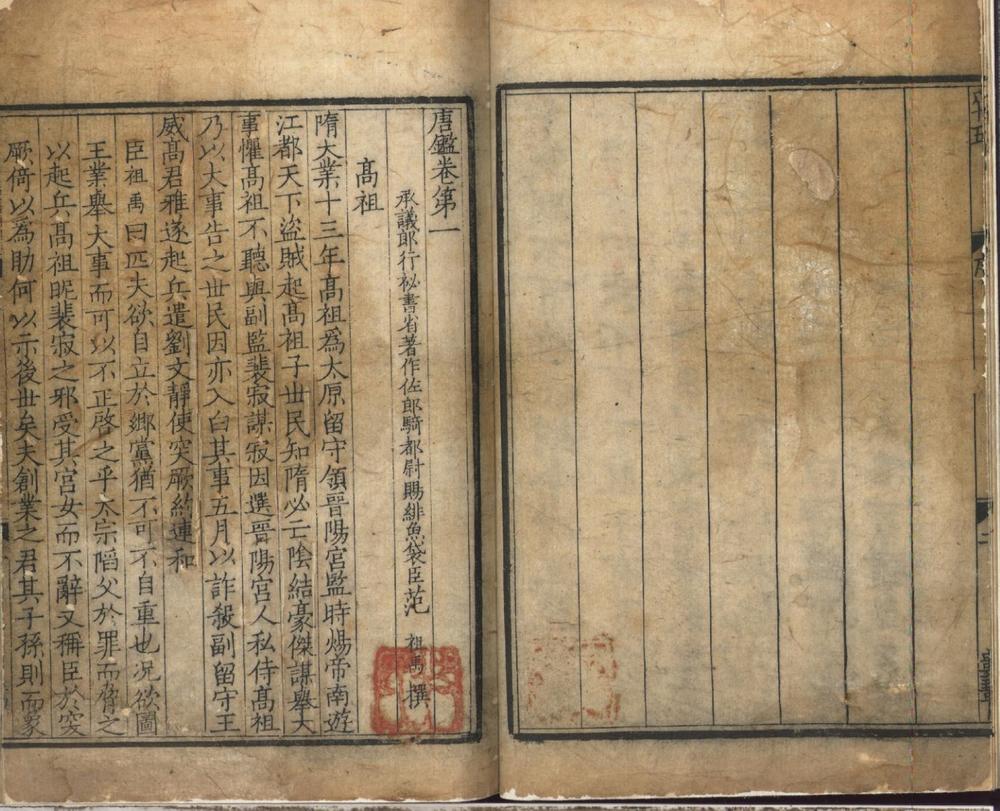 唐鑑卷第一
承議郎行祕書省著作佐郎騎都尉賜緋魚袋臣范祖禹撰
高祖
隋大業十三年高祖爲太原留守領晉陽宮監時煬帝南遊
江都天下盜賊起高祖子世民知隋必亡陰結豪傑謀舉大
事懼高祖不聽與副監裴寂謀寂因選晉陽宮人私侍高祖
乃以大事告之世民因亦入白其事五月以詐殺副留守王
威高君雅遂起兵遣劉文靜使突厥約連和
臣祖禹曰匹夫欲自立於鄉黨猶不可不自重也况欲圖
王業舉大事而可以不正啓之乎太宗陷父於罪而脅之
以起兵高祖昵裴寂之邪受其宮女而不辭又稱臣於突
厥倚以爲助何以示後世矣夫創業之君其子孫則而象